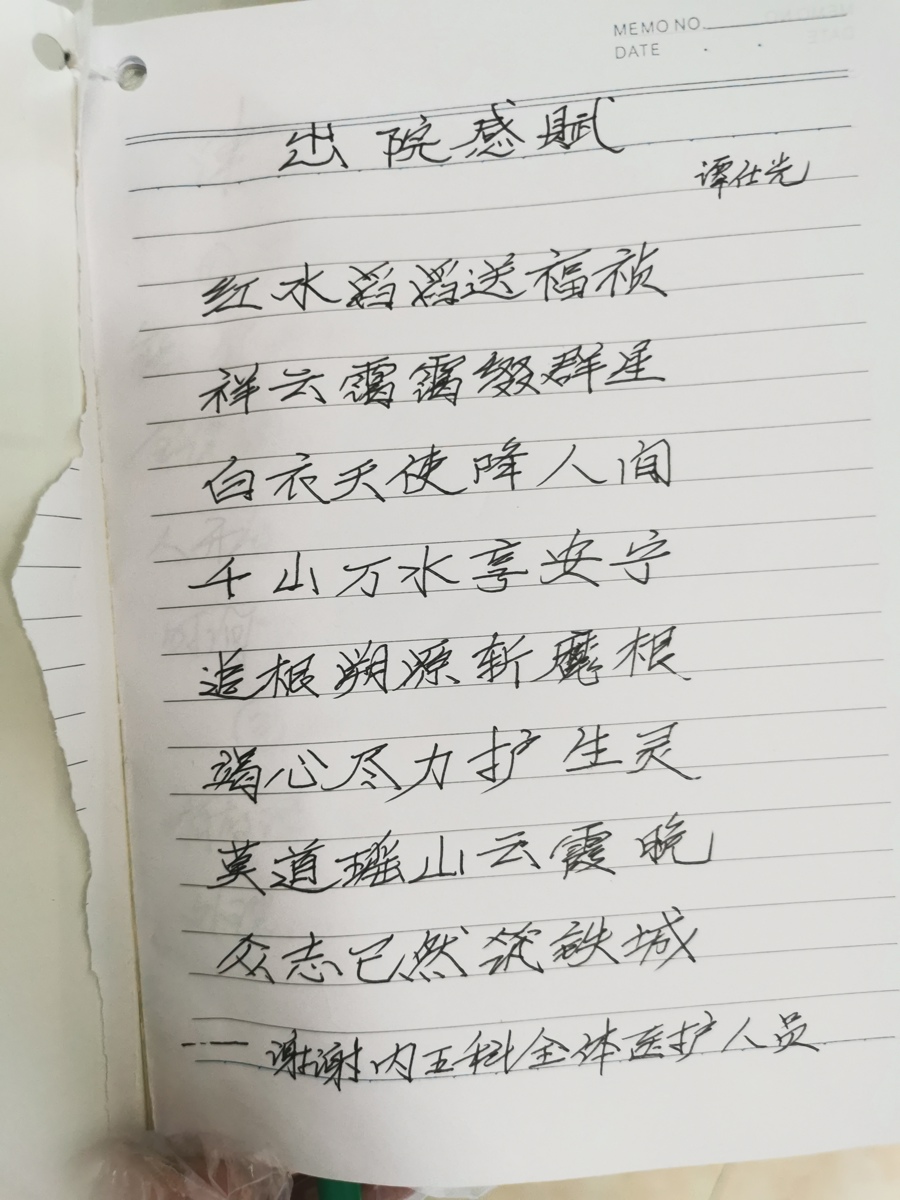 MEMO NO.
DATE . .
出院感赋
谭仕光
红水滔滔送福祯
祥云霭霭缀群星
白衣天使降人间
千山万水享安宁
追根朔源斩魔根
竭心尽力护生灵
莫道瑶山云霞晚
众志已然筑铁城
——谢谢内五科全体医护人员